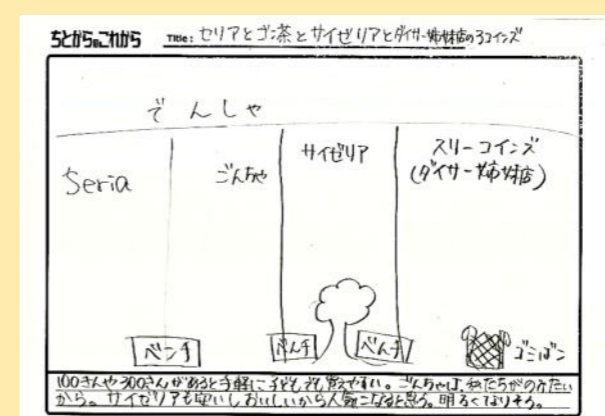 ちとからのこれから Title: セリアとゴン茶とサイゼリアとダイサー姉妹店の3コインズ
でんしゃ
Seria
ごんちゃ
サイゼリア
スリーコインズ
(ダイサー姉妹店)
ベンチ
べんち
べんち
ゴミばこ
100きんや300きんがあると手軽に子どもでも買えやすい。ごんちゃは、私たちがのみたい
から。サイゼリアも安いしおいしいから人気になると思う。明るくなりそう。